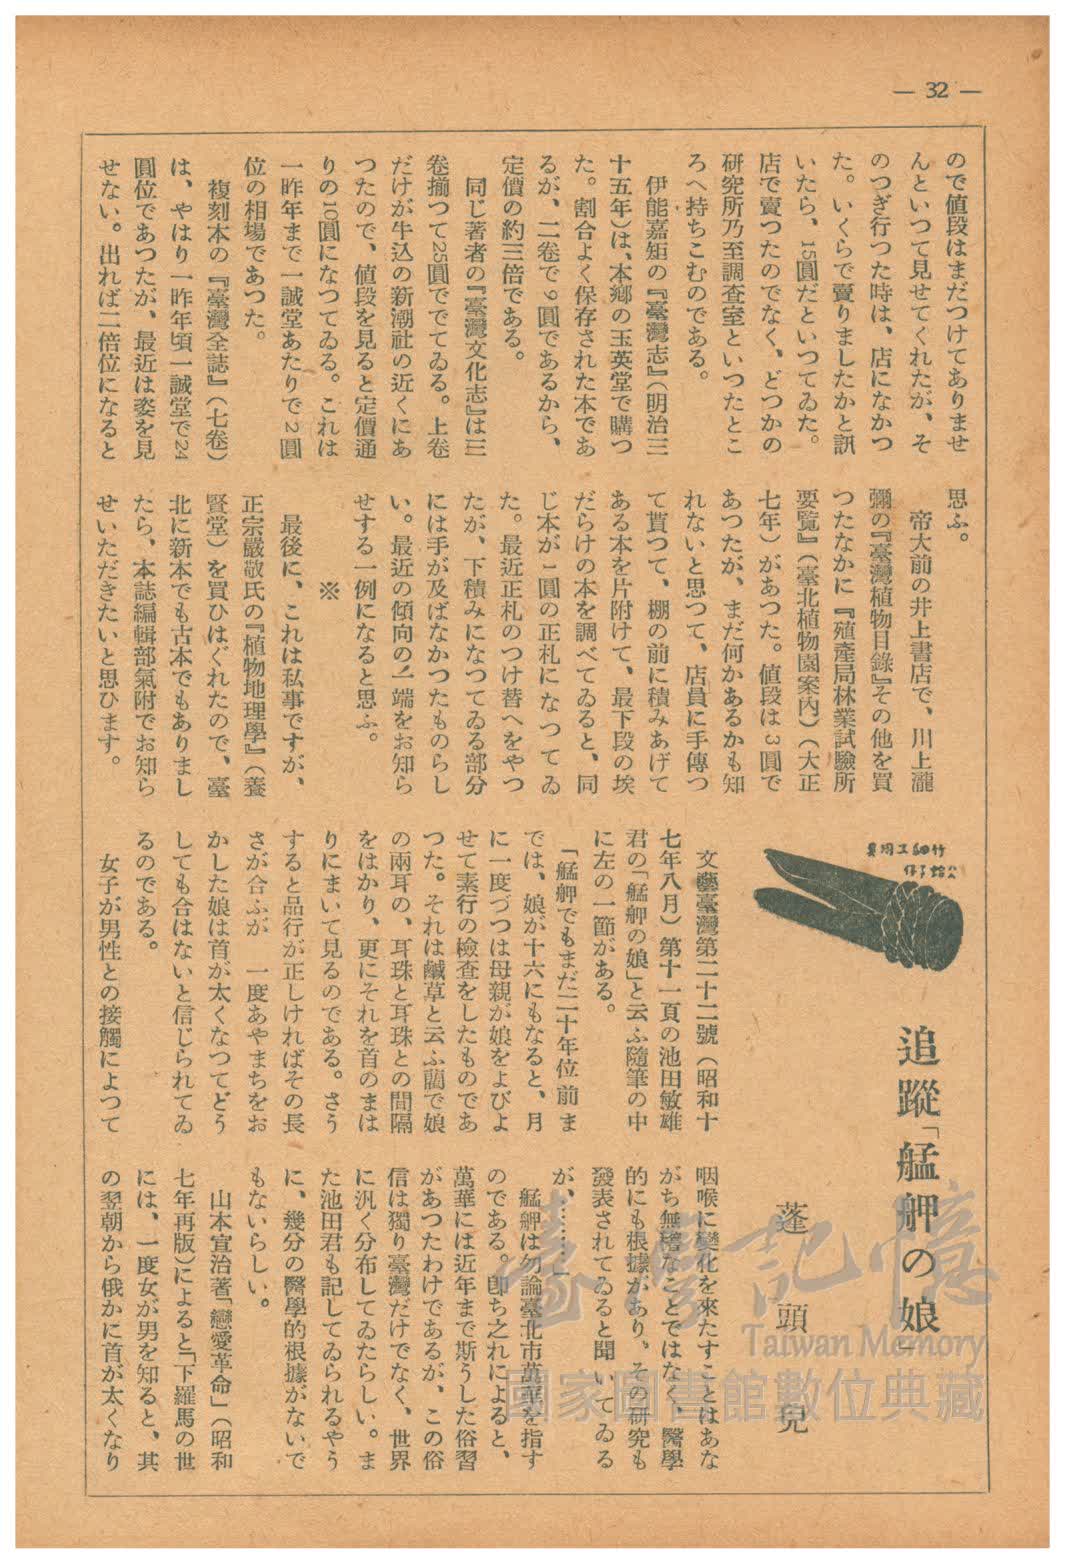 — 32 —
ので値段はまだつけてありませ
んといつて見せてくれたが、そ
のつぎ行つた時は、店になかつ
た。いくらで賣りましたかと訊
いたら、15圓だといつてゐた。
店で賣つたのでなく、どつかの
研究所乃至調査室といつたとこ
ろへ持ちこむのである。
伊能嘉矩の『臺灣志』(明治三
十五年)は、本鄕の玉英堂で購つ
た。割合よく保存された本であ
るが、二卷で9圓であるから、
定價の約三倍である。
同じ著者の『臺灣文化志』は三
卷揃つて25圓ででてゐる。上卷
だけが牛込の新潮社の近くにあ
つたので、値段を見ると定價通
りの10圓になつてゐる。これは
一昨年まで一誠堂あたりで2圓
位の相場であつた。
複刻本の『臺灣全誌』(七卷)
は、やはり一昨年頃一誠堂で24
圓位であつたが、最近は姿を見
せない。出れば二倍位になると
思ふ。
帝大前の井上書店で、川上瀧
彌の『臺灣植物目錄』その他を買
つたなかに『殖產局林業試驗所
要覧』(臺北植物園案內)(大正
七年)があつた。値段は3圓で
あつたが、まだ何かあるかも知
れないと思つて、店員に手傳つ
て貰つて、棚の前に積みあげて
ある本を片附けて、最下段の埃
だらけの本を調べてゐると、同
じ本が1圓の正札になつてゐ
た。最近正札のつけ替へをやつ
たが、下積みになつてゐる部分
には手が及ばなかつたものらし
い。最近の傾向の一端をお知ら
せする一例になると思ふ。
※
最後に、これは私事ですが、
正宗嚴敬氏の『植物地理學』(養
賢堂)を買ひはぐれたので、臺
北に新本でも古本でもありまし
たら、本誌編輯部氣附でお知ら
せいただきたいと思ひます。
追蹤「艋舺の娘」
蓬頭兒
文藝臺灣第二十二號(昭和十
七年八月)第十一頁の池田敏雄
君の「艋舺の娘」と云ふ隨筆の中
に左の一節がある。
「艋舺でもまだ二十年位前ま
では、娘が十六にもなると、月
に一度づつは母親が娘をよびよ
せて素行の檢査をしたものであ
つた。それは鹹草と云ふ藺で娘
の兩耳の、耳珠と耳珠との間隔
をはかり、更にそれを首のまは
りにまいて見るのである。さう
すると品行が正しければその長
さが合ふが 一度あやまちをお
かした娘は首が太くなつてどう
しても合はないと信じられてゐ
るのである。
女子が男性との接觸によつて
咽喉に變化を來たすことはあな
がち無稽なことではなく、醫學
的にも根據があり、その研究も
發表されてゐると聞いてゐる
が、………」
艋舺は勿論臺北市萬華を指す
のである。卽ち之れによると、
萬華には近年まで斯うした俗習
があつたわけであるが、この俗
信は獨り臺灣だけでなく、世界
に汎く分布してゐたらしい。ま
た池田君も記してゐられるやう
に、幾分の醫學的根據がないで
もないらしい。
山本宣治著「戀愛革命」(昭和
七年再版)によると「下羅馬の世
には、一度女が男を知ると、其
の翌朝から俄かに首が太くなり
臺灣記憶
Taiwan Memory
國家圖書館數位典藏